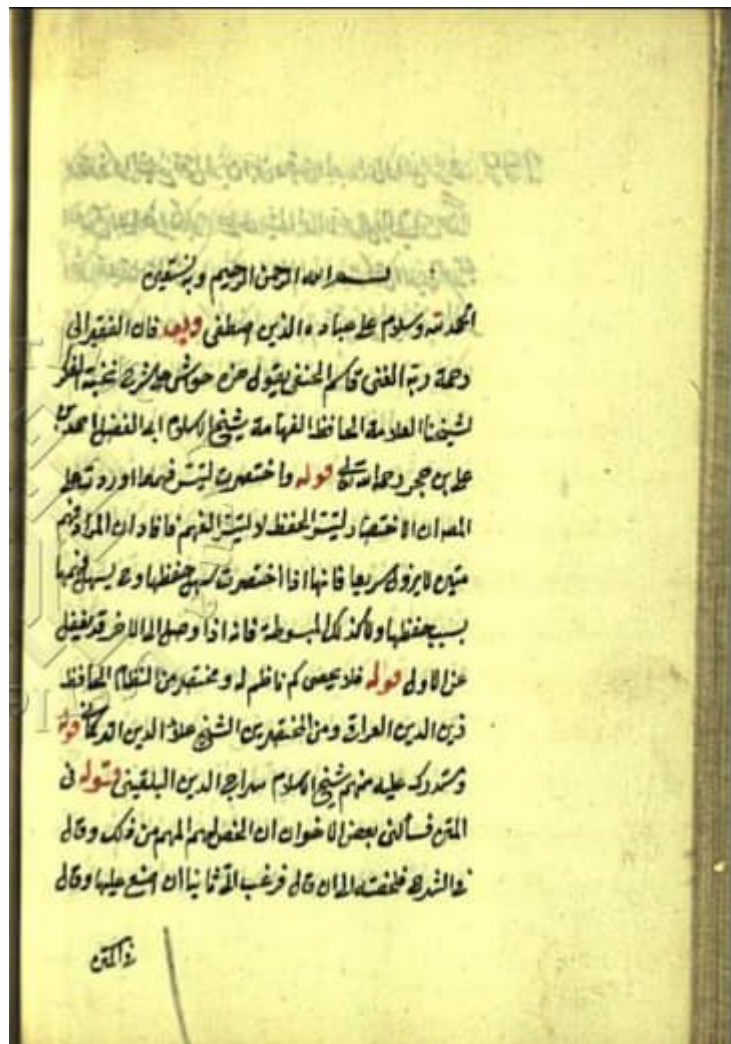 بسم الله الرحمن الرحيم وبه نستعين
الحمد لله وسلام على عباده الذين اصطفى وبعد فان الفقير الى
رحمة ربه الغنى قاسم الحنفى يقول هذه حواشى على شرح نخبة الفكر
لشيخنا العلامة الحافظ الفهامة شيخ الاسلام ابو الفضل احمد بن
على بن حجر رحمه الله تعالى قوله واختصرت ليتيسر فهمها اوردت على
المص ان الاختصار ليتيسر الحفظ لا ليتيسر الفهم فافاد ان المراد فهم
متين لا يزول سريعا فانها اذا اختصرت سهل حفظها وح يسهل فهمها
بسبب حفظها ولا كذلك المبسوطة فانه اذا وصل الى الاخر قد يغفل
عن الاول قوله فلا يحصى كم ناظم له ومختصر من النظام الحافظ
زين الدين العراقى ومن المختصرين الشيخ علاء الدين التركمانى قوله
ومستدرك عليه منهم شيخ الاسلام سراج الدين البلقينى قوله فى
المتن فسألنى بعض الاخوان ان الخص لهم المهم من ذلك وقال
فى الشرح فلخصته الى ان قال فرغب الى ثانيا ان اضع عليها وقال
فى المتن